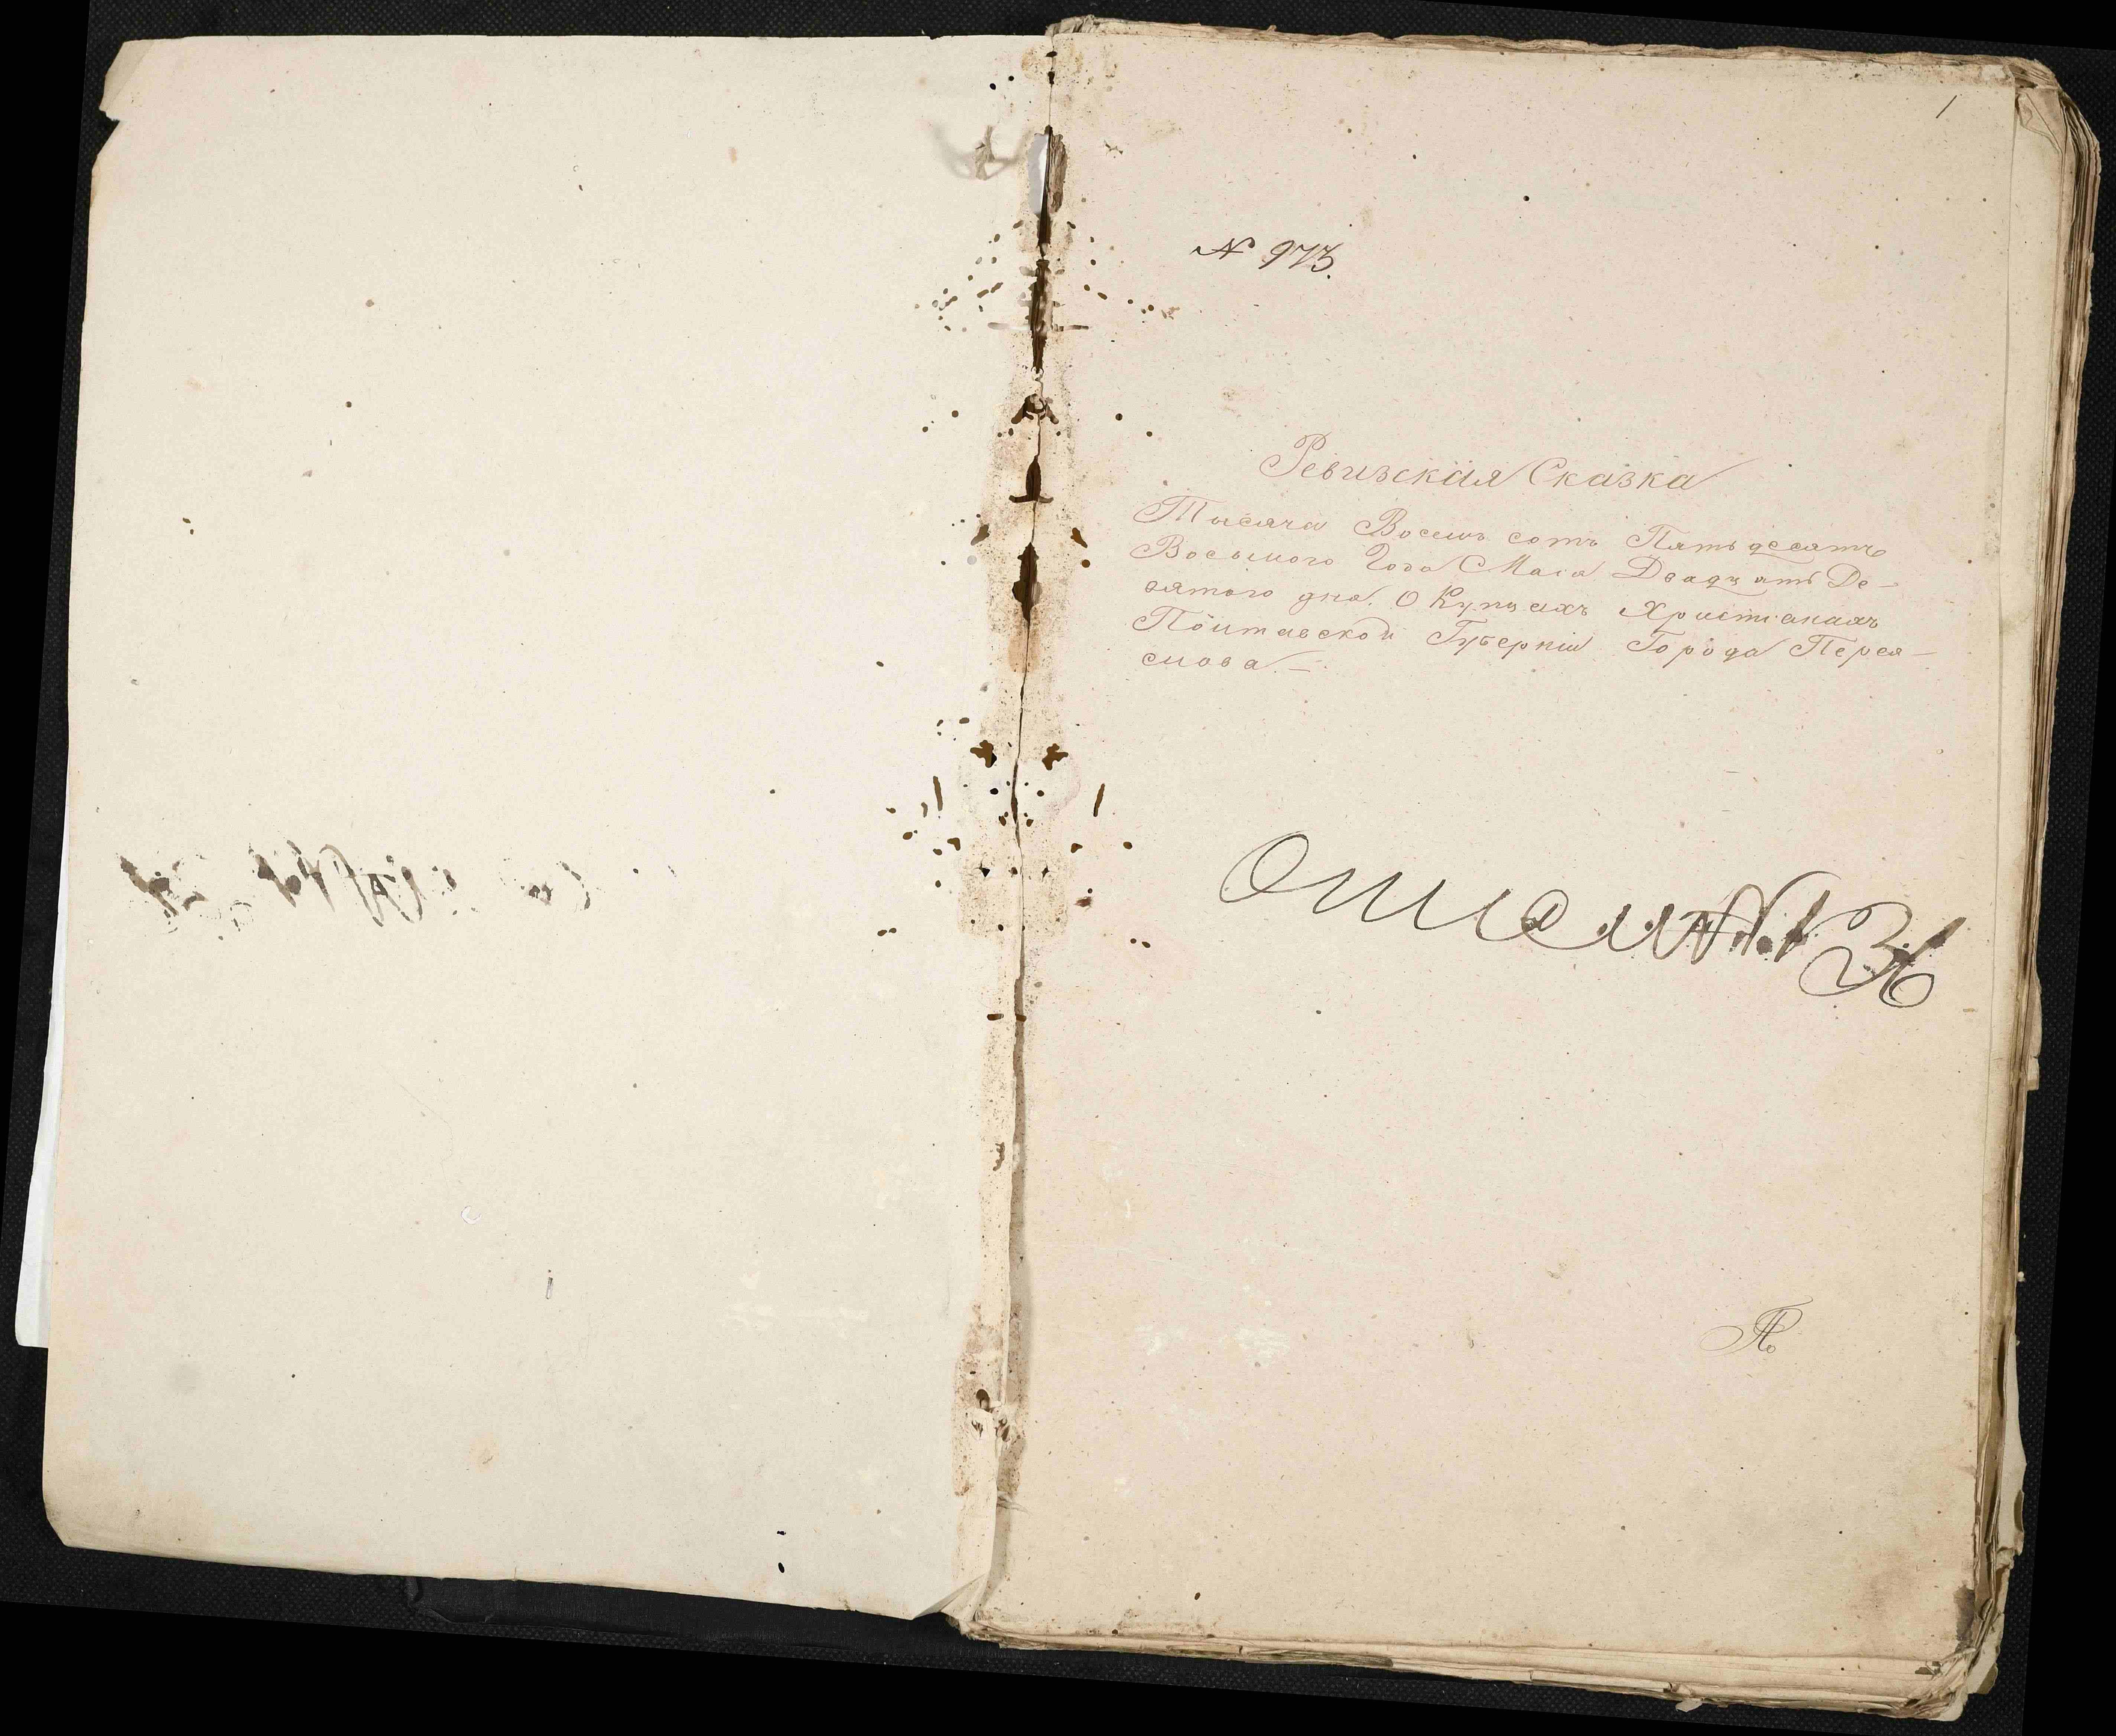 1
№ 973.
Ревизская Сказка
Тысяча Восемь сотъ Пятьдесятъ
Восьмого Года Маія Двадцать Де-
вятого дня. О Купцахъ Христіанахъ
Полтавской Губерніи Города Перея-
слова. —